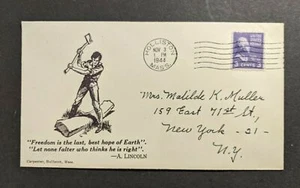 HOLLISTON
NOV 3
1 PM
1944
MASS.
3 CENTS 3
Mrs. Matilde K. Muller
159 East 71st St,
New York - 21 -
N.Y.
"Freedom is the last, best hope of Earth".
"Let none falter who thinks he is right".
—A. LINCOLN
Carpenter, Holliston, Mass.